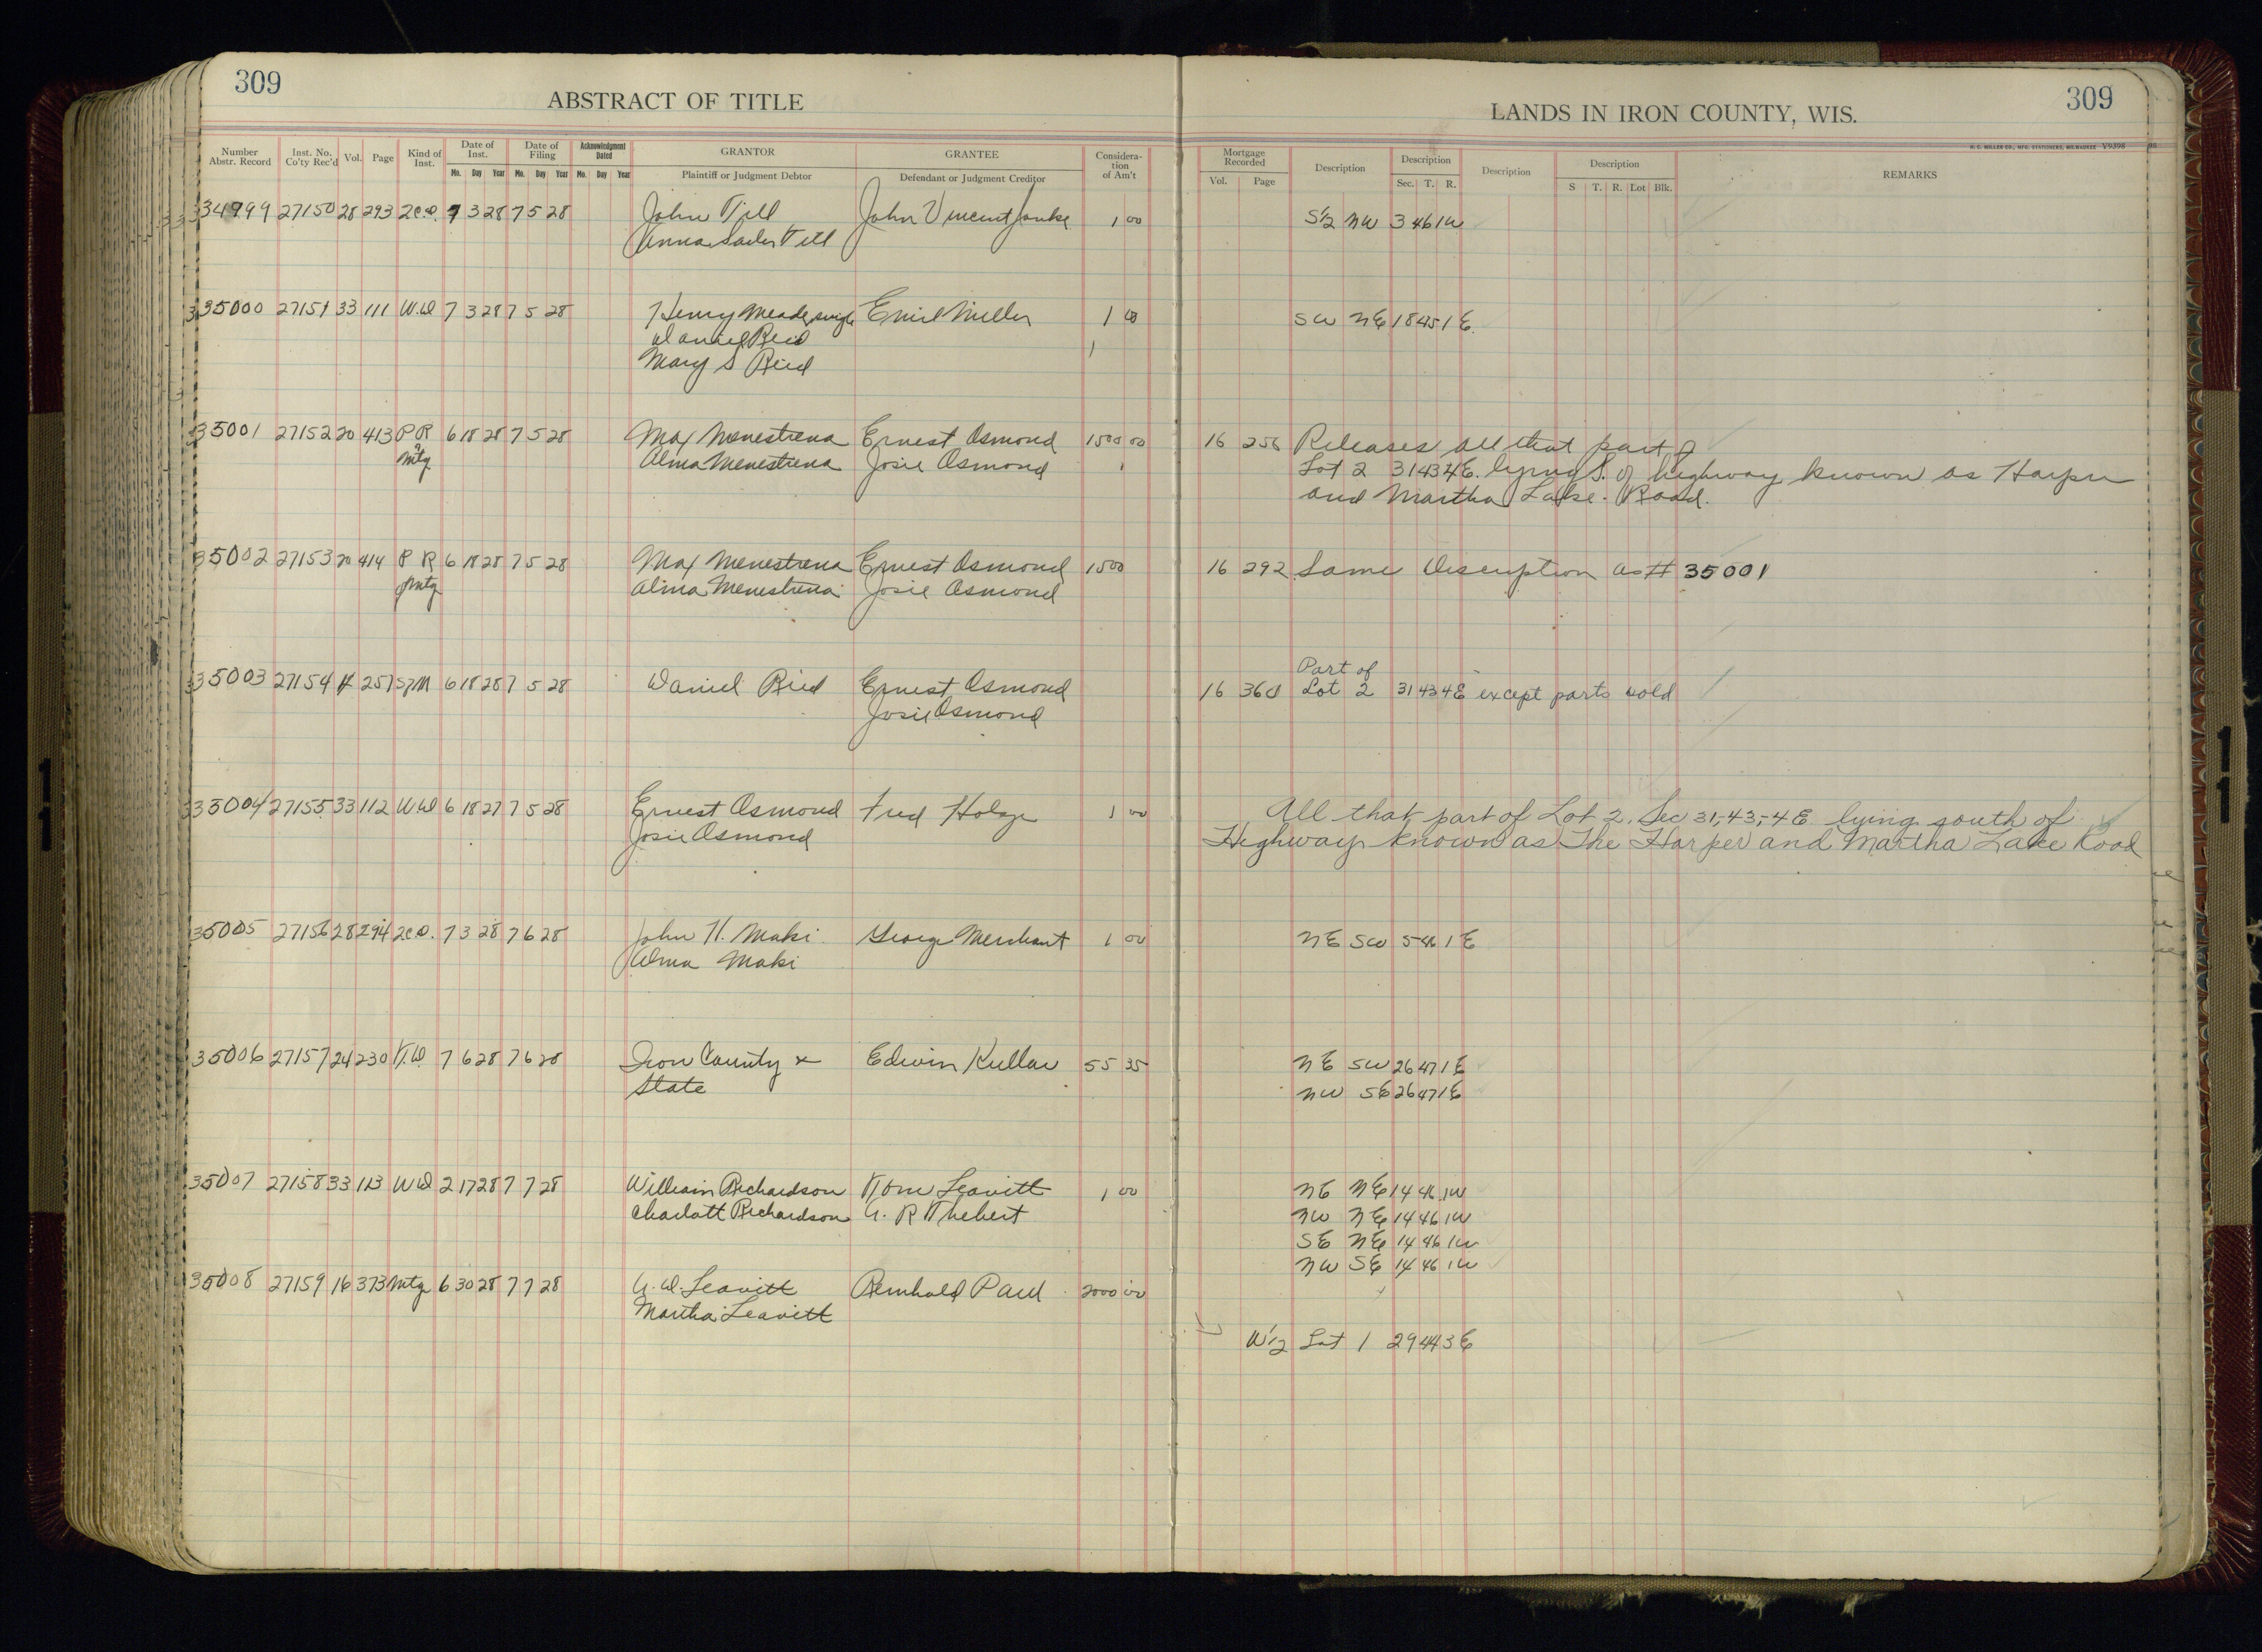 309
ABSTRACT OF TITLE
LANDS IN IRON COUNTY, WIS.
309
H. C. MILLER CO., MFG. STATIONERS, MILWAUKEE V9398
Number Abstr. Record Inst. No. Co'ty Rec'd Vol. Page Kind of Inst. Date of Inst. Mo. Day Year Date of Filing Mo. Day Year Acknowledgment Dated Mo. Day Year GRANTOR Plaintiff or Judgment Debtor GRANTEE Defendant or Judgment Creditor Considera-tion of Am't Mortgage Recorded Vol. Page Description Description Sec. T. R. Description Description S T. R. Lot Blk. REMARKS
34999 27150 28 293 2C.D. 7 3 28 7 5 28 John Till John Vincent 1 00 S½ NW 3 46 1W
Anna Till
35000 27151 33 111 W.D 7 3 28 7 5 28 Henry Meade single Emil Miller 1 00 SW NE 18 45 1 E.
Daniel Reid
Mary S Reid
35001 27152 20 413 P R 6 18 28 7 5 28 Max Menestrena Ernest Osmond 1500 00 16 256 Releases all that part of
Mtg Alma Menestrena Josie Osmond Lot 2 31 43 4E. lying S. of highway known as Harper
and Martha Lake Road.
35002 27153 20 414 P R 6 18 28 7 5 28 Max Menestrena Ernest Osmond 1500 16 292 Same Description as # 35001
of Mtg Alma Menestrena Josie Osmond
Part of
35003 27154 257 6 18 28 7 5 28 Daniel Ried Ernest Osmond 16 360 Lot 2 31 43 4E except parts sold
Josie Osmond
35004 27155 33 112 W.D 6 18 27 7 5 28 Ernest Osmond Fred 1 00 All that part of Lot 2, Sec 31,-43,-4 E lying south of
Josie Osmond Highway known as The Harper and Martha Lake Road
35005 27156 28 294 2C.D. 7 3 28 7 6 28 John H. Maki George Merchant 1 00 NE SW 5 46 1 E
Alma Maki
35006 27157 24 230 T.D. 7 6 28 7 6 28 Iron County & Edwin Kullau 55 35 NE SW 26 47 1 E
State NW SE 26 47 1 E
35007 27158 33 113 W D 2 17 28 7 7 28 William Richardson Tom Leavitt 1 00 NE NE 14 46 1W
Charlott Richardson A. R Thebert NW NE 14 46 1W
SE NE 14 46 1W
NW SE 14 46 1W
35008 27159 16 373 Mtg 6 30 28 7 7 28 A. D. Leavitt Reinhold Paul 2000 00
Martha Leavitt
W½ Lot 1 29 44 3 E